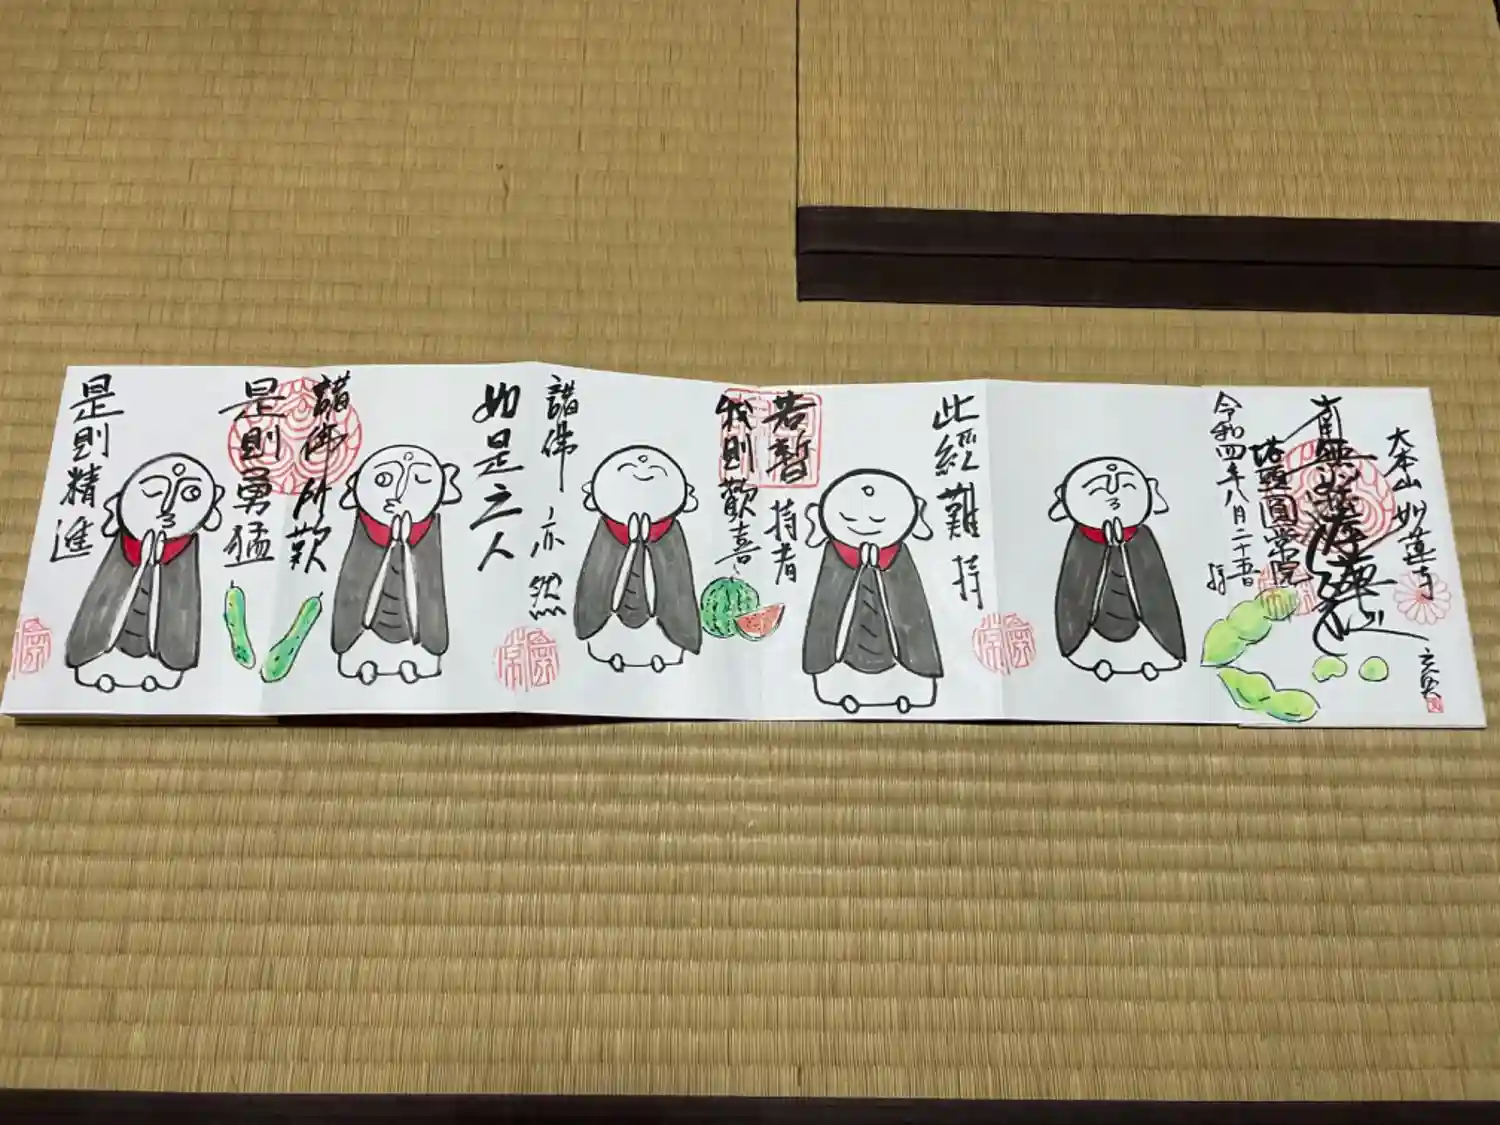 大本山 妙蓮寺
南無妙法蓮華経
塔頭 圓常院
令和四年八月二十五日
此経難持
若暫持者
我則歓喜
諸佛亦然
如是之人
諸佛所歎
是則勇猛
是則精進